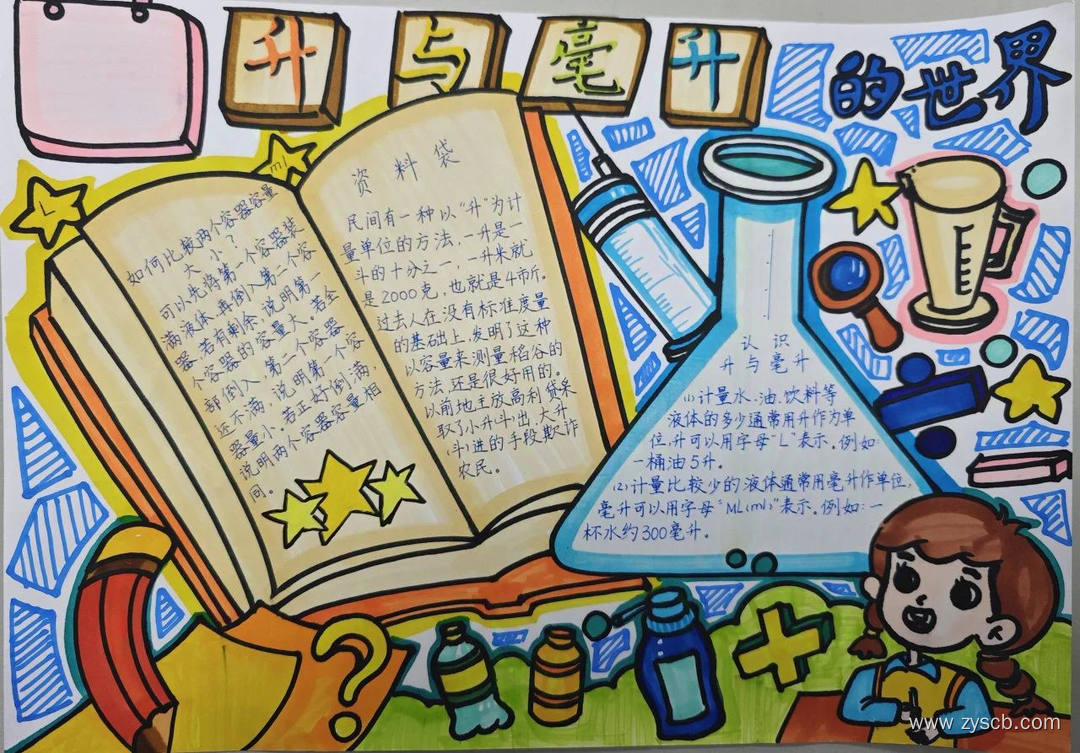 升与毫升的世界
L
ml
如何比较两个容器容量
大小?
可以先将第一个容器装
满液体,再倒入第二个容
器,若有剩余,说明第一
个容器的容量大。若全
部倒入第二个容器
还不满,说明第一个容
器量小。若正好倒满
说明两个容器容量相
同。
资料袋
民间有一种以“升”为计
量单位的方法,一升是一
斗的十分之一,一升米就
是2000克,也就是4市斤。
过去人在没有标准度量
的基础上,发明了这种
以容量来测量稻谷的
方法,还是很好用的。
以前地主放高利贷采
取了小升(斗)出,大升
(斗)进的手段欺诈
农民。
认识
升与毫升
(1)计量水、油、饮料等
液体的多少通常用升作为单
位,升可以用字母“L”表示。例如:
一桶油5升。
(2)计量比较少的液体通常用毫升作单位,
毫升可以用字母“ML(ml)”表示。例如:一
杯水约300毫升。
www.zyscb.com